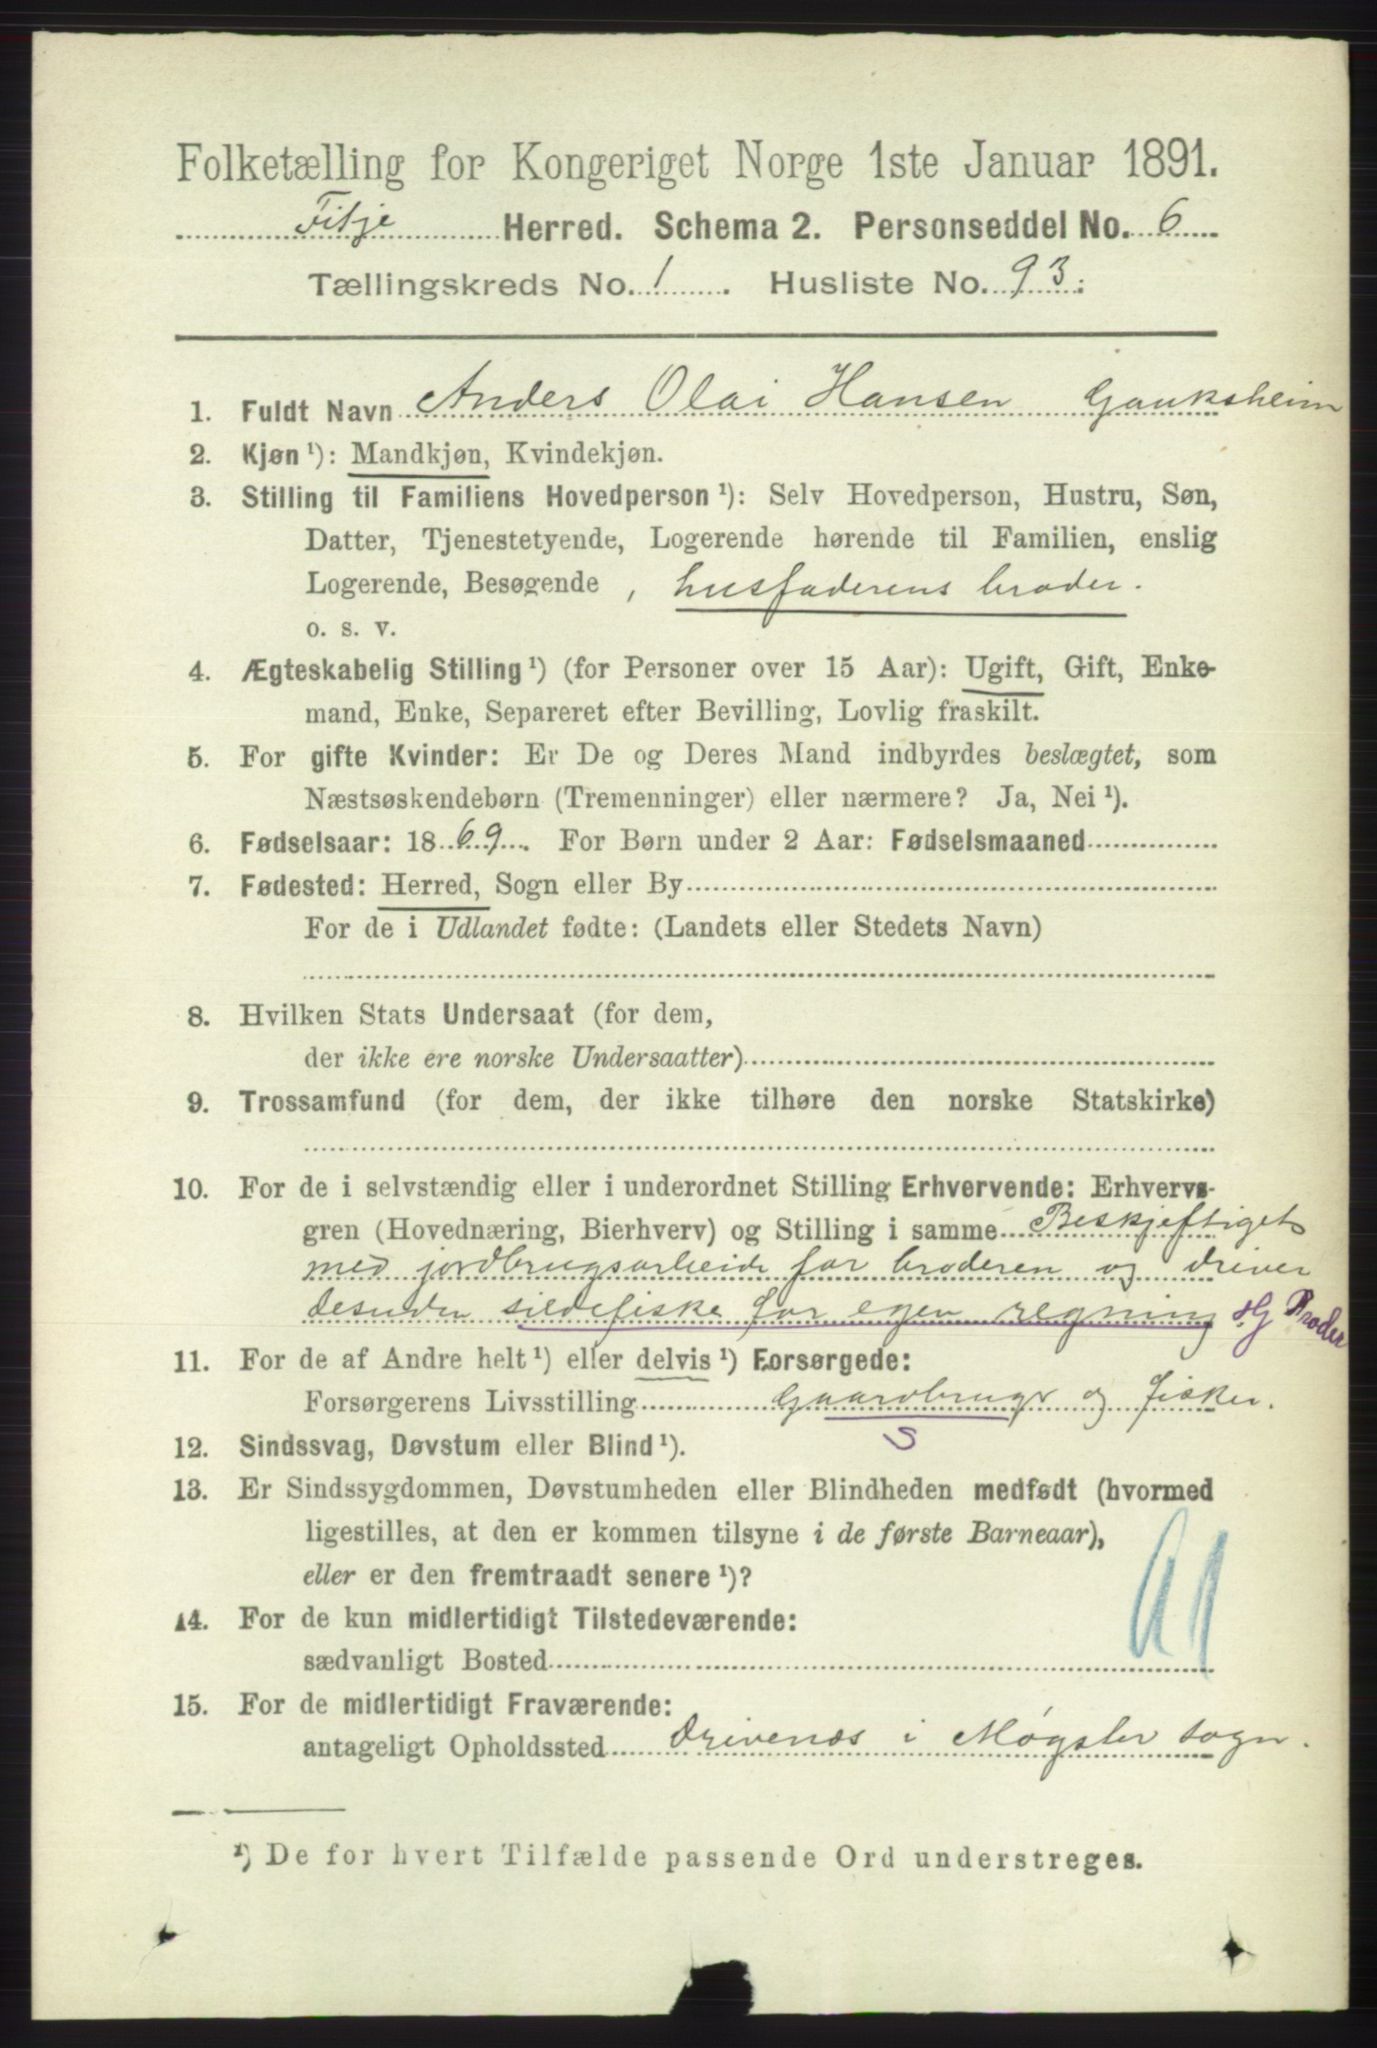 Folketælling for Kongeriget Norge 1ste Januar 1891.
Fitje Herred. Schema 2. Personseddel No. 6
Tællingskreds No. 1. Husliste No. 93.
1. Fuldt Navn Anders Olai Hansen Gauksheim
2. Kjøn ¹): Mandkjøn, Kvindekjøn.
3. Stilling til Familiens Hovedperson ¹): Selv Hovedperson, Hustru, Søn,
Datter, Tjenestetyende, Logerende hørende til Familien, enslig
Logerende, Besøgende, husfaderens broder.
o. s. v.
4. Ægteskabelig Stilling ¹) (for Personer over 15 Aar): Ugift, Gift, Enke-
mand, Enke, Separeret efter Bevilling, Lovlig fraskilt.
5. For gifte Kvinder: Er De og Deres Mand indbyrdes beslægtet, som
Næstsøskendebørn (Tremenninger) eller nærmere? Ja, Nei ¹).
6. Fødselsaar: 1869. For Børn under 2 Aar: Fødselsmaaned
7. Fødested: Herred, Sogn eller By
For de i Udlandet fødte: (Landets eller Stedets Navn)
8. Hvilken Stats Undersaat (for dem,
der ikke ere norske Undersaatter)
9. Trossamfund (for dem, der ikke tilhøre den norske Statskirke)
10. For de i selvstændig eller i underordnet Stilling Erhvervende: Erhvervs-
gren (Hovednæring, Bierhverv) og Stilling i samme Beskjeftiget
med jordbrugsarbeide for broderen og driver
desuden sildefiske for egen regning Hj Broder
11. For de af Andre helt ¹) eller delvis ¹) Forsørgede:
Forsørgerens Livsstilling Gaardbruger og fisker.
S
12. Sindssvag, Døvstum eller Blind ¹).
13. Er Sindssygdommen, Døvstumheden eller Blindheden medfødt (hvormed
ligestilles, at den er kommen tilsyne i de første Barneaar),
eller er den fremtraadt senere ¹)?
14. For de kun midlertidigt Tilstedeværende:
sædvanligt Bosted
15. For de midlertidigt Fraværende:
antageligt Opholdssted Drivenæs i Møgster sogn.
¹) De for hvert Tilfælde passende Ord understreges.